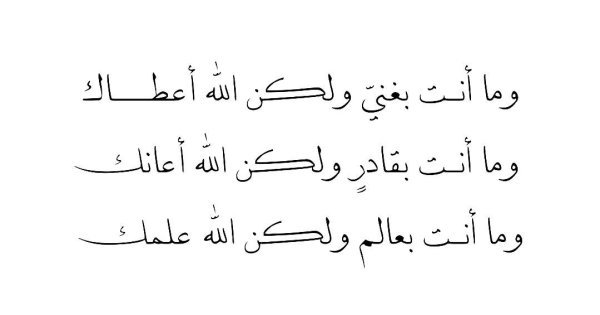 وما أنت بغنيّ ولكن الله أعطاك
وما أنت بقادرٍ ولكن الله أعانك
وما أنت بعالم ولكن الله علمك